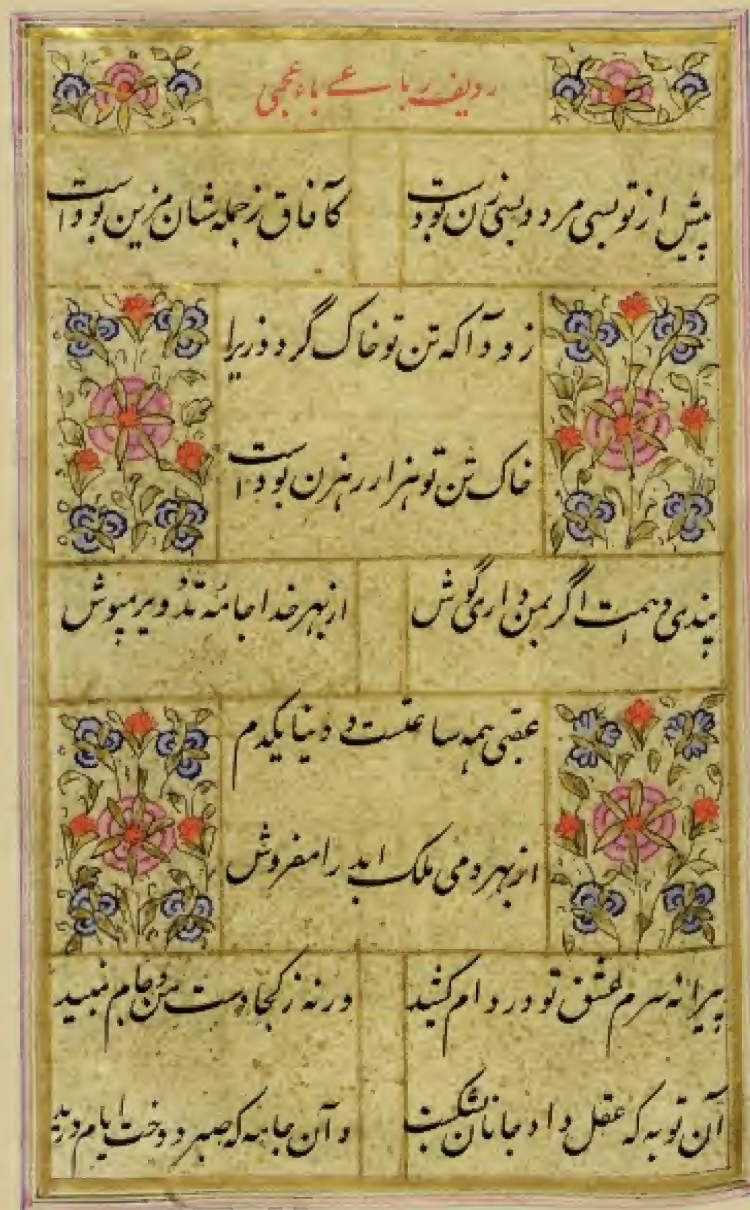 ردیف رباعی باء عجمی
پیش از تو بسی مرد و بسی زن بودست
کآفاق ز جمله شان مزین بوداست
زود آ که تن تو خاک گردد زیرا
خاک تن تو هزار رهزن بوداست
پندی دهمت اگر بمن داری گوش
از بهر خدا جامهٔ تزویر مپوش
عقبی همه ساعتست و دنیا یکدم
از بهر دمی ملک ابد را مفروش
پیرانه سرم عشق تو در دام کشید
ورنه ز کجا دست من و جام نبید
آن توبه که عقل داد جانان بشکست
و آن جامه که صبر دوخت ایام درید